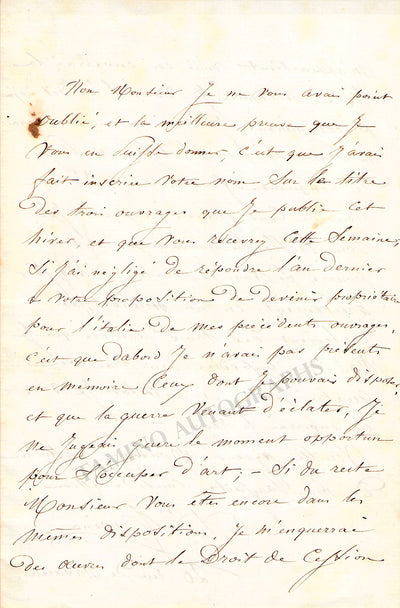 Non Monsieur Je ne vous avais point
oublié, et la meilleure preuve que Je
vous en puisse donner, c'est que J'avais
fait inscrire votre nom sur le titre
des trois ouvrages que Je publie cet
hiver, et que vous recevrez cette semaine,
Si j'ai négligé de répondre l'an dernier
a votre proposition de devenir propriétaire
pour l'italie de mes précédents ouvrages,
c'est que dabord Je n'avais pas présents
en mémoire Ceux dont Je pouvais disposer,
et que la guerre venant d'éclater, Je
ne Jugeais guere le moment opportun
pour s'occuper d'art, – Si du reste
Monsieur vous êtes encore dans les
mêmes dispositions, Je m'enquerrai
des œuvres dont le Droit de Cession
TAMINO AUTOGRAPHS